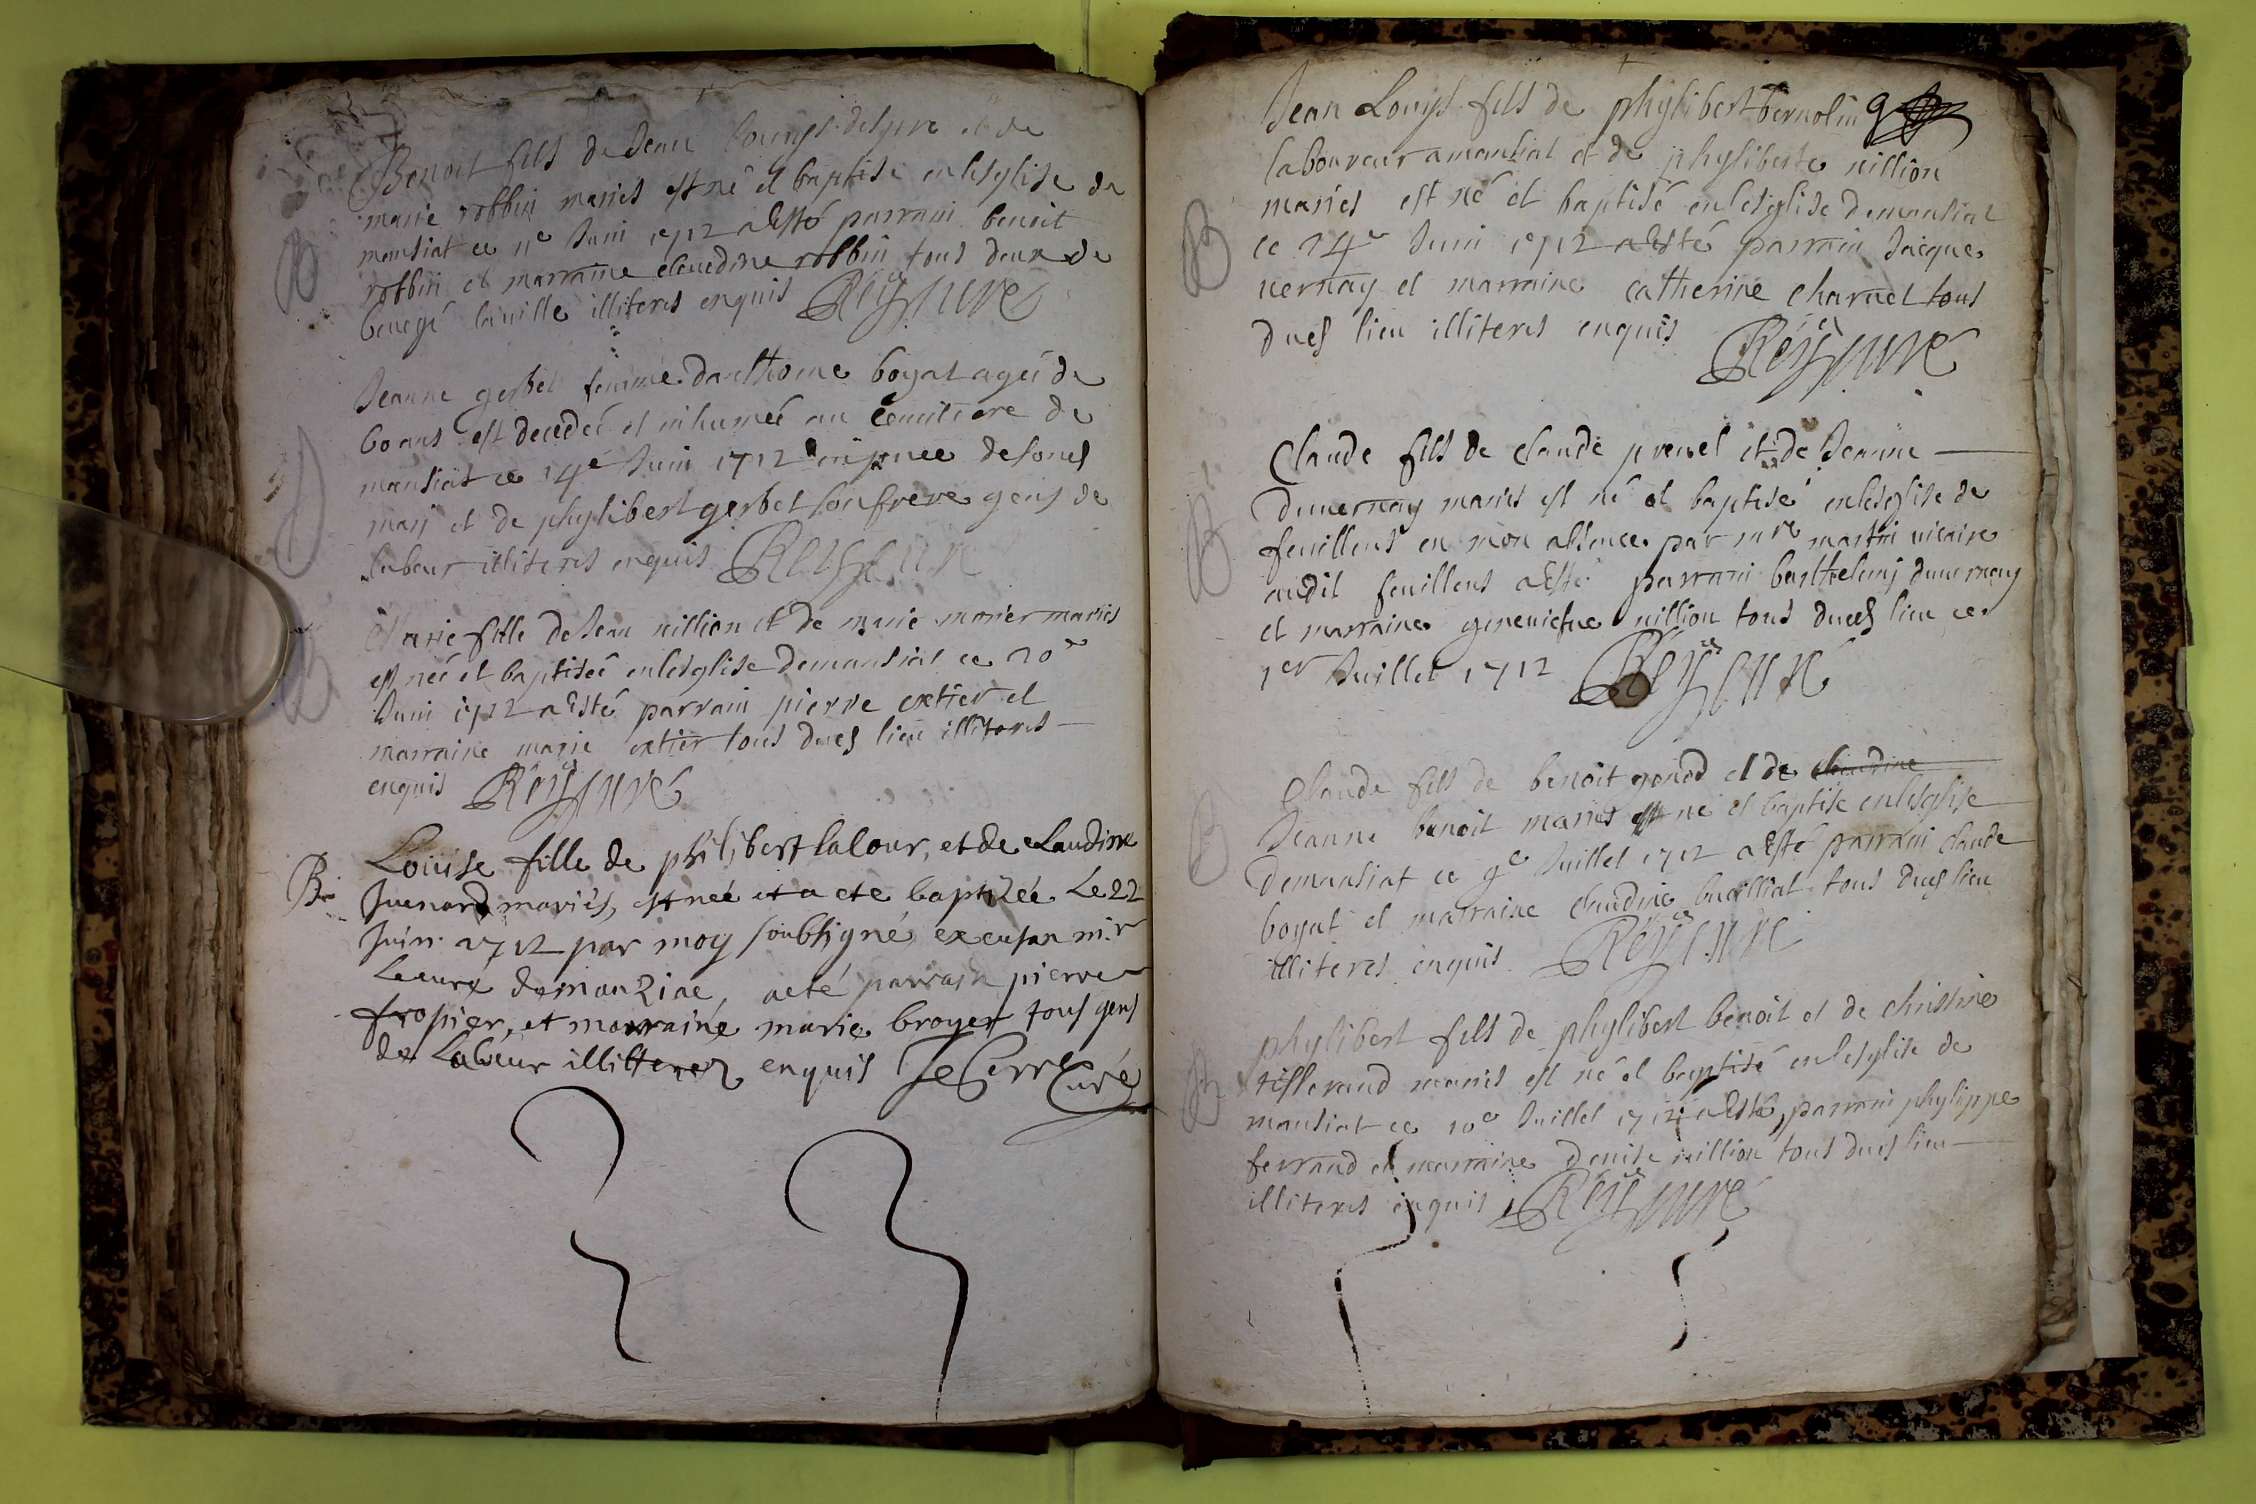 Benoit fils de Jean Louys despre et de
marie robbin mariés est né et baptisé en lesglise de
mansiat ce 11e Juin 1712 a Esté parrain benoit
robbin et marraine claudine robbin tous deux de
baugé la ville illiteres enquis Rey curé
B
Jeanne gerbet femme danthoine boyat ageé de
60 ans est decedeé et inhumeé au cemitiere de
mansiat ce 14e Juin 1712 en pnce de sond
mary et de phylibert gerbet son frere gens de
labeur illiteres enquis Rey curé
Marie fille de Jean nillion et de marie morier mariés
est neé et baptiseé en lesglise de mansiat ce 20e
Juin 1712 a Esté parrain pierre extier et
marraine marie extier tous dud lieu illiteres
enquis Rey curé
B
B. Louise fille de philibert lalour, et de claudine
Juenard mariés, est née et a eté baptizée Le 22
Juin 1712 par moy soubsigné, excusan mr
Le curé de manziac, a eté parrain pierre
fropier, et marraine marie broyer tous gens
de Labeur illitterez enquis Curé
Jean Louys fils de phylibert bernolin
laboureur a mansiat et de phyliberte nillion
mariés est né et baptisé en lesglise de mansiat
ce 24e Juin 1712 a Esté parrain Jacque
uernay et marraine catherine charuet tous
dud lieu illiteres enquis Rey curé
B
Claude fils de claude preuel et de Jeanne
duuernay mariés est né et baptisé en lesglise de
feuillens en mon absence par mre martin uicaire
audit feuillens a Esté parrain barthelemy duuernay
et marraine geneuiefue nillion tous dud lieu ce
1er Juillet 1712 Rey curé
B
Claude fils de benoit gonod et de claudine
Jeanne benoit mariés est né et baptisé en lesglise
de mansiat ce 9e Juillet 1712 a Esté parrain claude
boyat et marraine claudine tous dud lieu
illiteres enquis Rey curé
B
phylibert fils de phylibert benoit et de christine
tisserand mariés est né et baptisé en lesglise de
mansiat ce 10e Juillet 1712 a Esté parrain phylippe
ferrand et marraine denise nillion tous dud lieu
illiteres enquis Rey curé
B